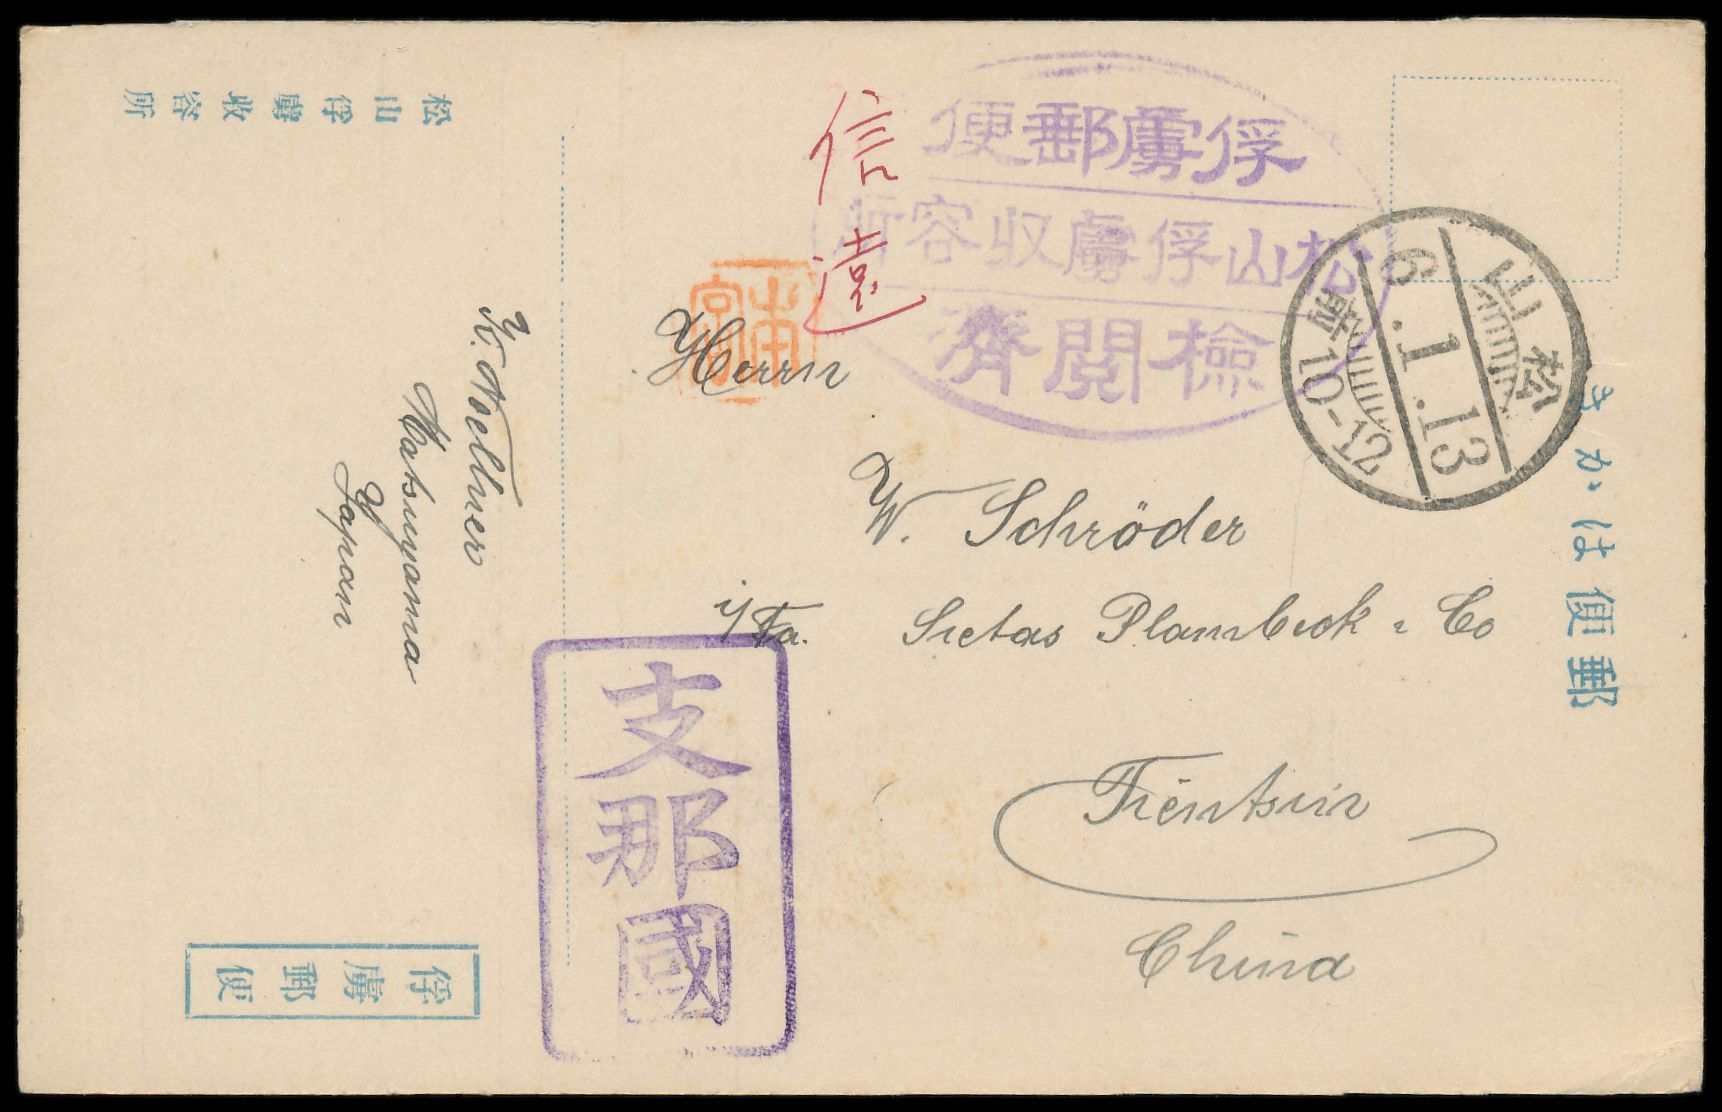 松山俘虜收容所
俘虜郵便
松山俘虜収容所
檢閲濟
信遠
松山
6.1.13
前10-12
郵便はかき
Herrn
W. Schröder
i/Fa. Sietas Plambeck & Co
Tientsin
China
K. Noellner
Matsuyama
Japan
支那國
俘虜郵便